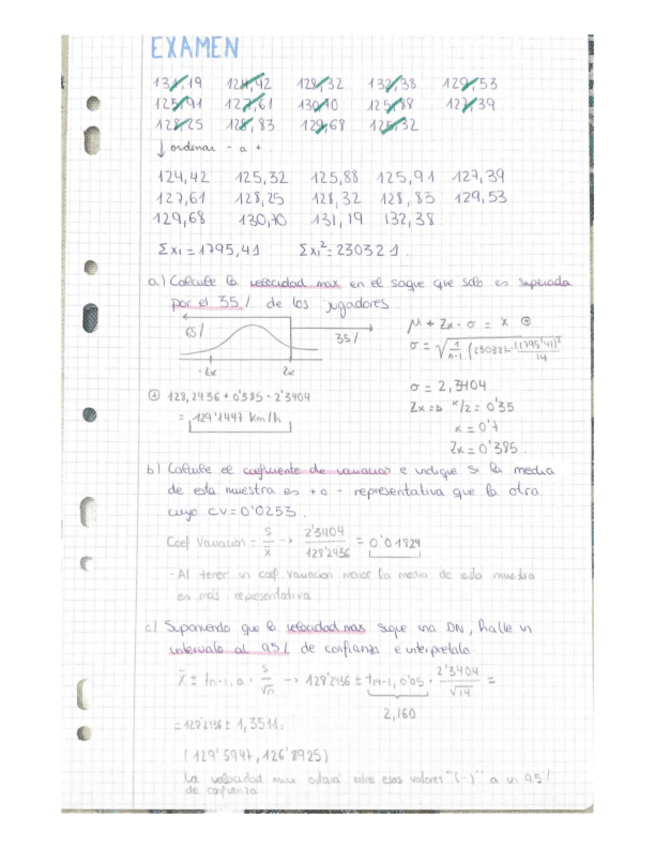 EXAMEN
131,19 124,42 128,32 132,38 129,53
125,91 127,61 130,70 125,88 127,39
128,25 128,83 129,68 125,32
↓ ordenar - a +
124,42 125,32 125,88 125,91 127,39
127,61 128,25 128,32 128,83 129,53
129,68 130,70 131,19 132,38
Σxi = 1795,41 Σxi² = 230321.
a) Calcule la velocidad max en el saque que solo es superada
por el 35% de los jugadores
65% 35%
-Zα Zα
μ + Zα · σ = x ⊕
σ = √ 1/n-1 (230321 - (1795'41)²/14
σ = 2,3404
⊕ 128,2436 + 0'385 · 2'3404
= 129'1447 km/h
Zα => α/2 = 0'35
α = 0'7
Zα = 0'385.
b) Calcule el coeficiente de variación e indique si la media
de esta muestra es + o - representativa que la otra
cuyo CV = 0'0253.
Coef Variación = S/x̄ -> 2'3404/128'2436 = 0'01824
· Al tener un coef. variacion menor la media de esta muestra
es más representativa.
c) Suponiendo que la velocidad max sigue una DN, halle un
intervalo al 95% de confianza e interpretalo.
x̄ ± tn-1, α · S/√n -> 128'2436 ± t14-1, 0'05 · 2'3404/√14 =
2,160
= 128'2436 ± 1,3511.
(129'5947, 126'8925)
La velocidad max estará entre esos valores "(-)" a un 95%
de confianza